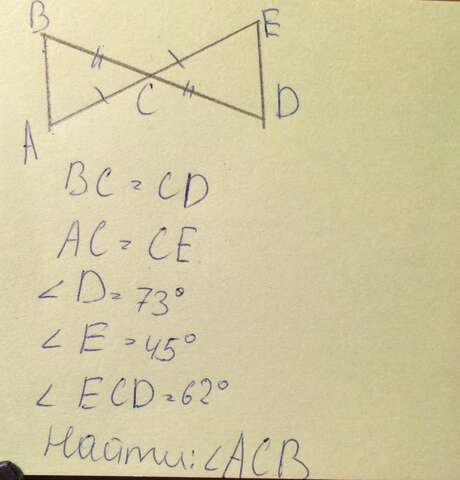 B E
C D
A
BC = CD
AC = CE
∠D = 73°
∠E = 45°
∠ECD = 62°
Найти: ∠ACB